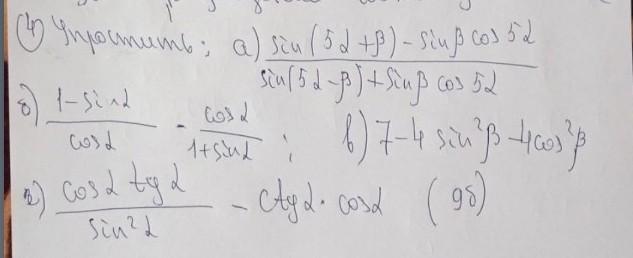 ④ Упростить: а) sin(5α+β) - sinβ cos5α / sin(5α-β) + sinβ cos5α
б) 1-sinα / cosα - cosα / 1+sinα ; в) 7-4 sin²β - 4cos²β
г) cosα tgα / sin²α - ctgα · cosα (9б)